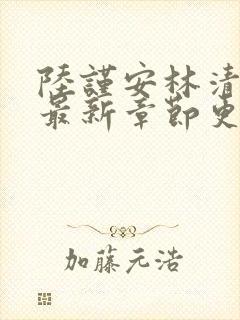 陸謹安林清
最新章節更
加藤元浩